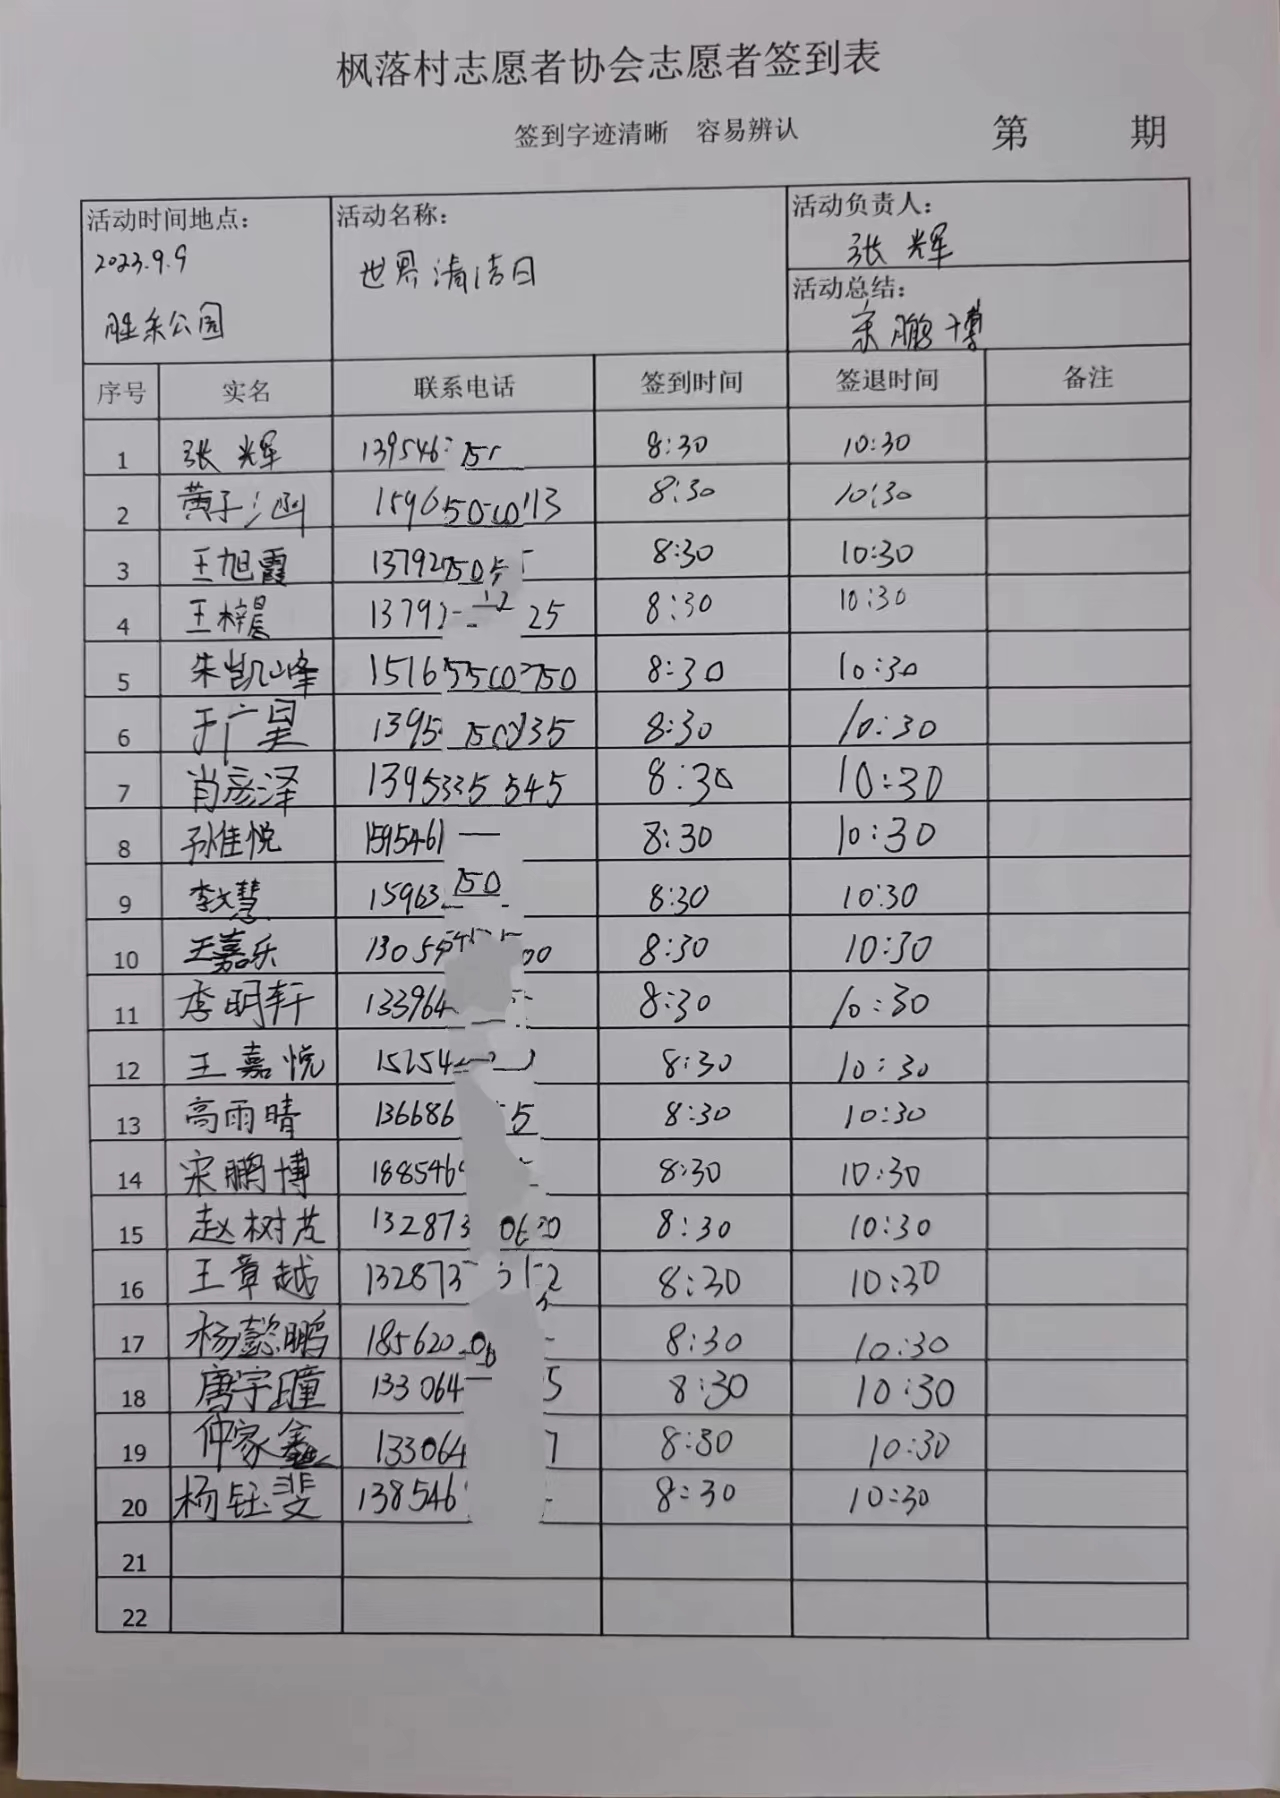 枫落村志愿者协会志愿者签到表
签到字迹清晰 容易辨认 第 期
活动时间地点： 活动名称： 活动负责人：
2023.9.9 世界清洁日 张辉
胜东公园 活动总结：
宋鹏博
序号 实名 联系电话 签到时间 签退时间 备注
1 张辉 139546 8:30 10:30
2 黄子涵 1596 13 8:30 10:30
3 王旭霞 13792 8:30 10:30
4 王梓晨 1379 25 8:30 10:30
5 朱凯峰 1516 750 8:30 10:30
6 于广昊 1395 35 8:30 10:30
7 肖彦泽 1395335 545 8:30 10:30
8 孙佳悦 1595461 8:30 10:30
9 李文慧 15963 8:30 10:30
10 王嘉乐 1305 00 8:30 10:30
11 李明轩 133964 8:30 10:30
12 王嘉悦 15254 8:30 10:30
13 高雨晴 136686 5 8:30 10:30
14 宋鹏博 188546 8:30 10:30
15 赵树芃 132873 8:30 10:30
16 王章越 132873 2 8:30 10:30
17 杨懿鹏 185620 8:30 10:30
18 唐宇曈 133064 5 8:30 10:30
19 仲家鑫 133064 7 8:30 10:30
20 杨钰斐 138546 8:30 10:30
21
22